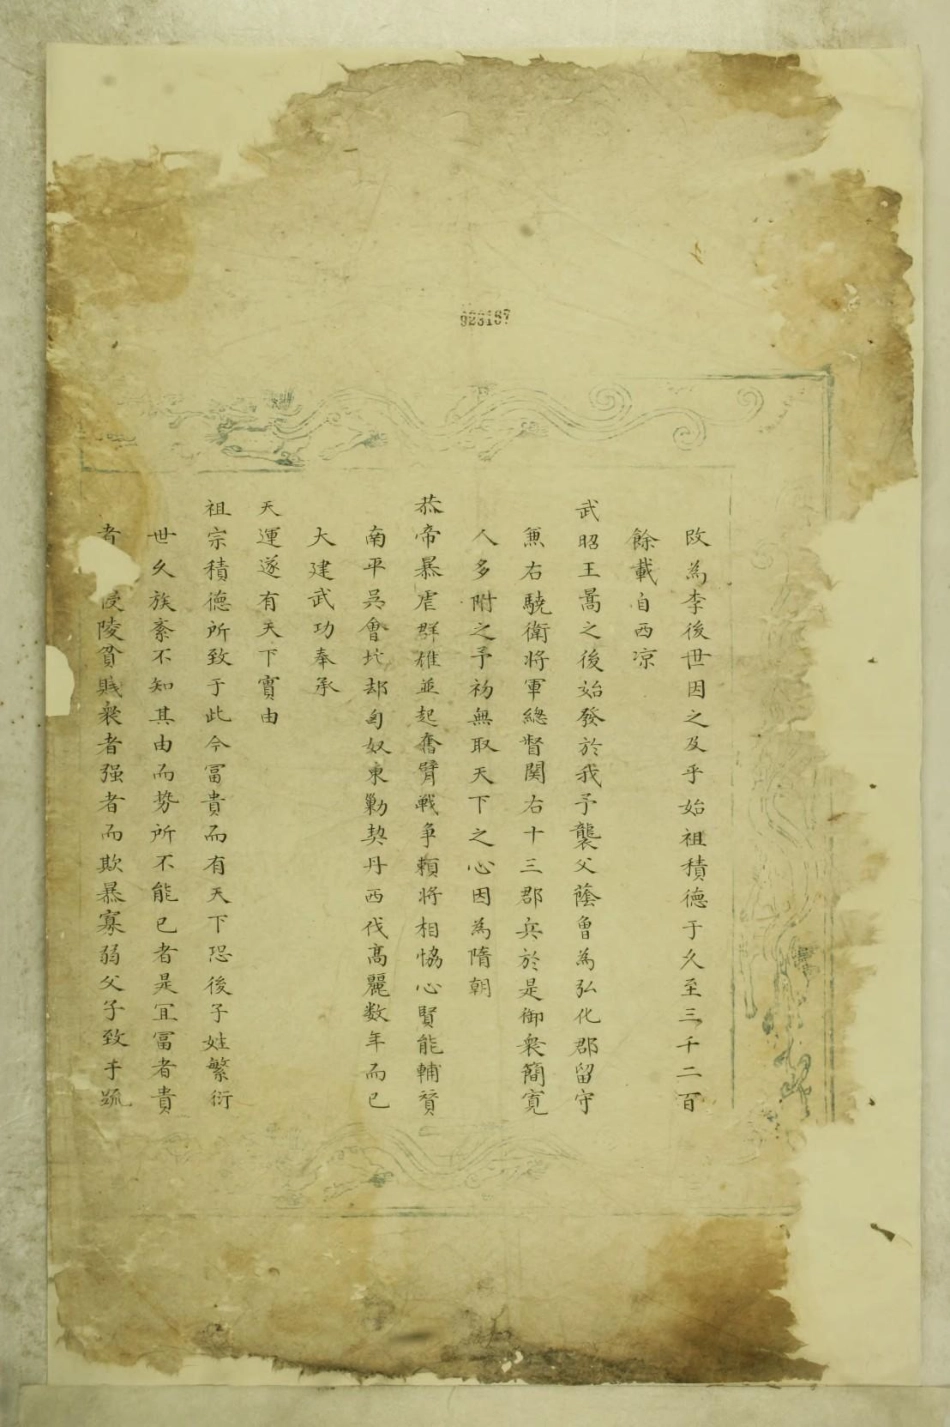 923187
改為李後世因之及乎始祖積德于久至三千二百
餘載自西凉
武昭王暠之後始發於我予襲父蔭曾為弘化郡留守
兼右驍衛將軍總督関右十三郡兵於是御衆簡寬
人多附之予初無取天下之心因為隋朝
恭帝暴虐群雄並起奮臂戰爭頼將相恊心賢能輔賛
南平吳會北却匈奴東勦契丹西伐高麗数年而已
大建武功奉承
天運遂有天下實由
祖宗積德所致于此今冨貴而有天下恐後子姓繁衍
世久族紊不知其由而势所不能已者是宜冨者貴
者 陵貧賎衆者强者而欺暴寡弱父子致乎踈